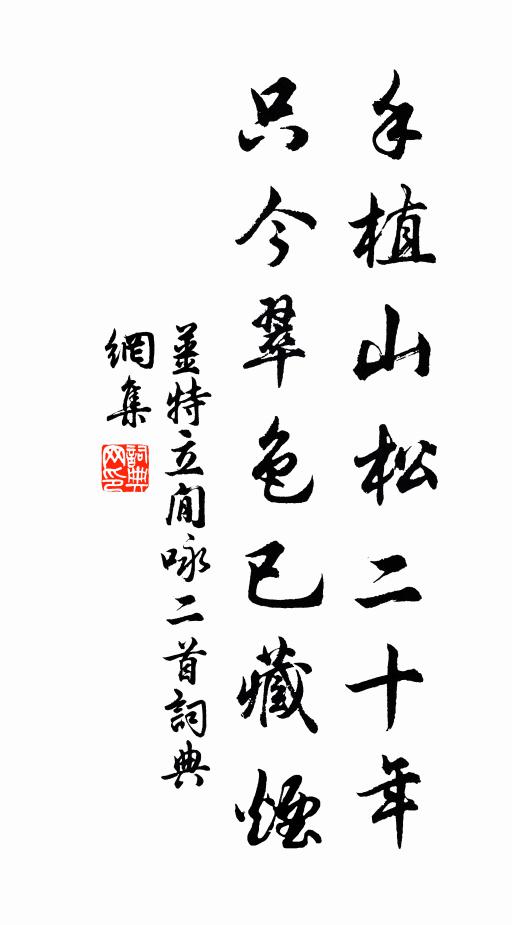 手植山松二十年
只今翠色已藏煙
姜特立閒咏二首詞典
網集
詞典網印